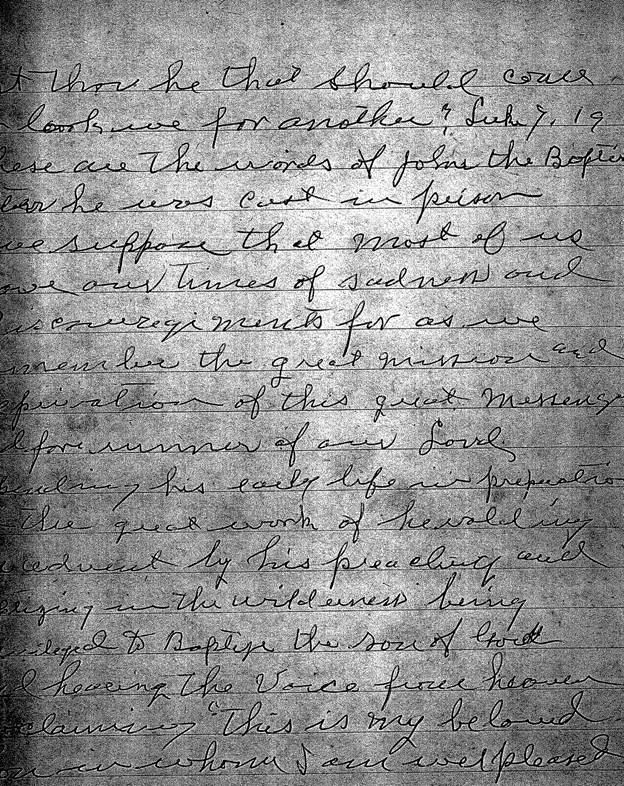 t thou he that should come
look we for another? Luke 7. 19
ese are the words of John the Baptis
ter he was cast in prison
we suppose that most of us
ave our times of sadness and
iscouragements for as we
member the great mission and
spiration of this great messeng
d forerunner of our Lord,
ending his early life in preparatio
the great work of heralding
advent by his preaching and
tizing in the wilderness being
ileged to Baptize the son of God
d hearing the Voice from heaven
claiming "This is my beloved
on in whom I am well pleased